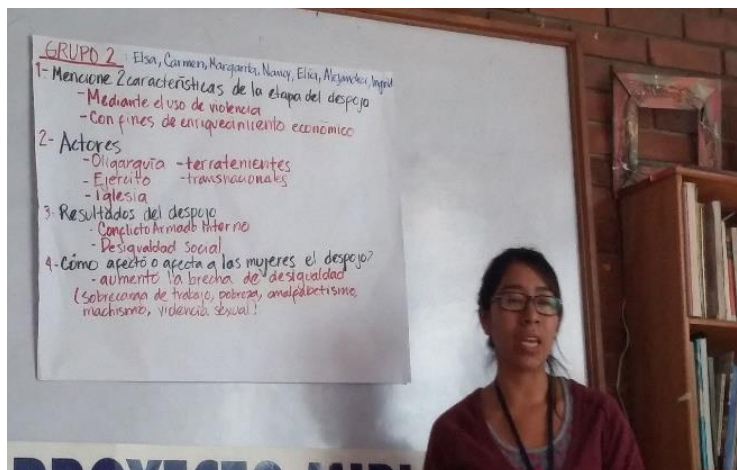 GRUPO 2 : Elsa, Carmen, Margarita, Nancy, Elia, Alejandra, Ingrid
1- Mencione 2 características de la etapa del despojo
- Mediante el uso de violencia
- Con fines de enriquecimiento económico
2- Actores
- Oligarquía - terratenientes
- Ejercito - transnacionales
- Iglesia
3. Resultados del despojo
- Conflicto Armado Interno
- Desigualdad Social
4- Cómo afectó o afecta a las mujeres el despojo?
- aumento la brecha de desigualdad
(sobrecarga de trabajo, pobreza, amalfabetisme,
machismo, violencia sexual!
PROYECTO